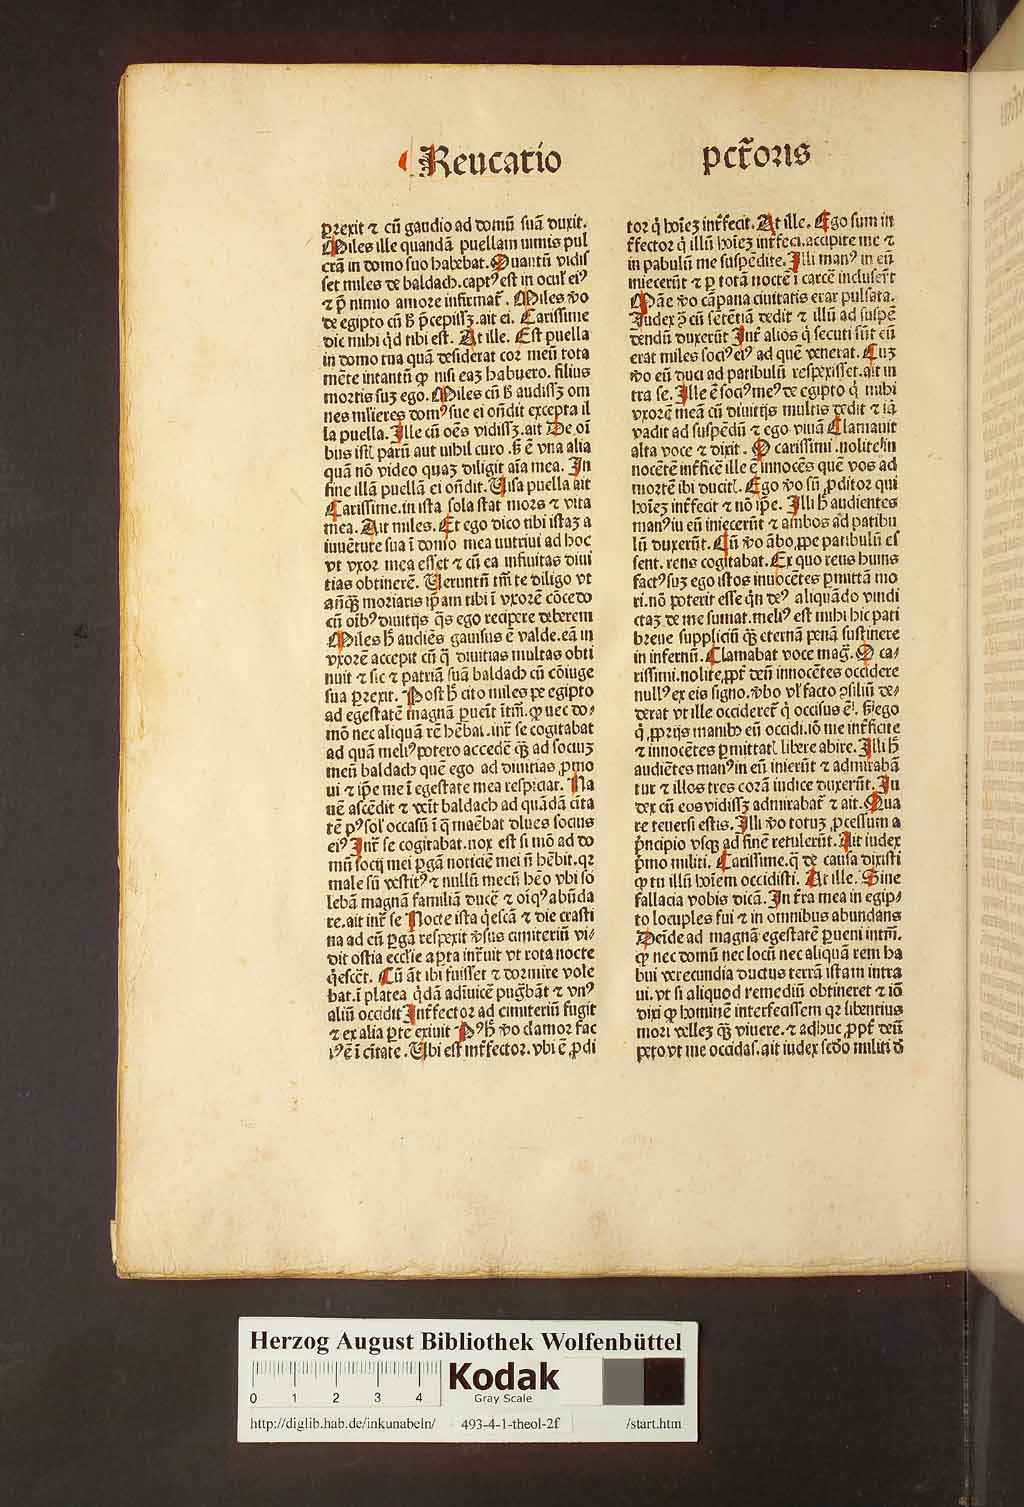 Reuocatio pctõris
perexit ⁊ cũ gaudio ad domũ suã duxit.
Miles ille quandã puellam nimis pul
crã in domo suo habebat. Quantũ vidis
set miles de baldach. captꝰ est in ocul' eiꝰ
⁊ p̄ nimio amore infirmat᷑. Miles v̑o
de egipto cũ h̄ p̄cepissꝫ. ait ei. Carissime
dic mihi q̇d tibi est. At ille. Est puella
in domo tua quã desiderat cor meũ tota
mẽte intantũ ꝙ nisi eaꝫ habuero. filius
mortis suꝫ ego. Miles cũ h̄ audissꝫ om
nes mlieres domꝰ sue ei oñdit excepta il
la puella. Ille cũ oẽs vidissꝫ. ait De oĩ
bus istꝭ parũ aut nihil curo. h̄ ẽ vna alia
quã nõ video quaꝫ diligit aĩa mea. In
fine illã puellã ei oñdit. Visa puella ait
Carissime. in ista sola stat mors ⁊ vita
mea. Ait miles. Et ego dico tibi istaꝫ a
iuuẽtute sua ĩ domo mea nutriui ad hoc
vt vxor mea esset ⁊ cũ ea infinitas diui
tias obtinerẽ. Veruntñ tm̃ te diligo vt
añq̃ꝫ moriaris ip̃am tibi ĩ vxorẽ cõcedo
cũ oĩbꝰ diuitijs q̃s ego recipere deberem
Miles h̄ audiẽs gauisus ẽ valde. eã in
vxorẽ accepit cũ q̃ diuitias multas obti
nuit ⁊ sic ⁊ patriã suã baldach cũ cõiuge
sua perexit. Post h̄ cito miles pe egipto
ad egestatẽ magnã puenit ĩtm̃. ꝙ nec do⸗
mõ nec aliquã rẽ hẽbat. int̃ se cogitabat
ad quã meliꝰ potero accedẽ q̃ꝫ ad sociuꝫ
meũ baldach quẽ ego ad diuitias ꝓmo
ui ⁊ ip̃e me ĩ egestate mea respiciar. Na
uẽ ascẽdit ⁊ veĩt baldach ad quãdã cĩta
tẽ pꝰ sol' occasũ ĩ q̃ maẽbat diues socius
eiꝰ Int̃ se cogitabat. nox est si mõ ad do
mũ socij mei pgã noticiẽ mei ñ hẽbit. qꝛ
male sũ vestitꝰ ⁊ nullũ mecũ hẽo vbi so
lebã magnã familiã ducẽ ⁊ oĩqꝰ abũda
re. ait int̃ se Nocte ista q̇escã ⁊ die crasti
na ad eũ pgã respexit v̑sus cimiteriũ vi⸗
dit ostia eccl'ie apta intᷓuit vt tota nocte
q̇escẽt. Cũ ãt ibi fuisset ⁊ dormire vole
bat. ĩ platea q̇dã adĩuicẽ pugᷓbãt ⁊ vnꝰ
aliũ occidit Int̃fector ad cimiteriũ fugit
⁊ ex alia pte exiuit Pꝰ h̄ v̑o clamor fac̃
tꝰ ẽ ĩ cĩtate. Vbi est int̃fector. vbi ẽ ꝓdi
tor q̇ hoĩeꝫ int̃fecit. At ille. Ego sum in
t̃fector q̇ illũ hoĩeꝫ int̃feci. accipite me ⁊
in pabulũ me suspẽdite. Illi manꝰ in eũ
iniecerũt ⁊ p totã noctẽ ĩ carcẽ inclusert̃
Mãe v̑o cãpana ciuitatis erat pulsata.
Iudex ꝯ̃ cũ sẽtẽtiã dedit ⁊ illũ ad suspẽ
dendũ duxerũt Int̃ alios q̇ secuti sũt eũ
erat miles sociꝰ eiꝰ ad quẽ venerat. Cuꝫ
v̑o eũ duci ad patibulũ respexisset. ait in
tra se. Ille ẽ sociꝰ meꝰ de egipto q̇ mihi
vxorẽ meã cũ diuitijs multis dedit ⁊ iã
vadit ad suspẽdũ ⁊ ego viuã Clamauit
alta voce ⁊ dixit. O carissimi. nolite in
nocẽtẽ int̃ficẽ ille ẽ innocẽs quẽ vos ad
mortẽ ibi ducitꝭ. Ego v̑o sũ ꝓditor qui
hoĩeꝫ int̃fecit ⁊ nõ ip̃e. Illi h̄ audientes
manꝰ in eũ iniecerũt ⁊ ambos ad patibu
lũ duxerũt. Cũ v̑o ãbo ꝓpe patibulũ es
sent. reus cogitabat. Ex quo reus huius
factꝰ suꝫ ego istos innocẽtes pmittã mo
ri. nõ poterit esse q̇n deꝰ aliquãdo vindi
ctaꝫ de me sumat. meliꝰ est mihi hic pati
breue suppliciũ q̃ꝫ eternã penã sustinere
in infernũ. Clamabat voce magᷓ. O ca⸗
rissimi. nolite, ꝓpt̃ deũ innocẽtes occidere
nullꝰ ex eis signo. v̑bo vl' facto ꝯsiliũ de⸗
derat vt ille occideret̃ q̇ occisus ẽ. s' ego
q̇ ꝓprijs manibꝫ eũ occidi. iõ me int̃ficite
⁊ innocẽtes pmittatꝭ libere abire. Illi h̄
audiẽtes manꝰ in eũ inierũt ⁊ admirabã
tur ⁊ illos tres corã iudice duxerũt. Iu
dex cũ eos vidissꝫ admirabat᷑ ⁊ ait. Qua
re reuersi estis. Illi v̑o totuꝫ ꝓcessum a
p̃ncipio vsqꝫ ad finẽ retulerũt. Ait iudex
p̃mo militi. Carissime. q̃ de causa dixisti
ꝙ tu illũ hoĩem occidisti. At ille. Sine
fallacia vobis dicã. In t̃ra mea in egip⸗
to locuples fui ⁊ in omnibus abundans
Deĩde ad magnã egestatẽ pueni intm̃.
ꝙ nec domũ nec locũ nec aliquã rem ha
bui verecundia ductus terrã istam intra
ui. vt si aliquod remediũ obtineret ⁊ iõ
dixi ꝙ hominẽ interfecissem qꝛ libentius
mori velleꝫ q̃ꝫ viuere. ⁊ adhuc ꝓpt̃ deũ
peto vt me occidas. ait iudex sedo militi d̃
Herzog August Bibliothek Wolfenbüttel
0 1 2 3 4
Kodak
Gray Scale
http://diglib.hab.de/inkunabeln/ 493-4-1-theol-2f /start.htm